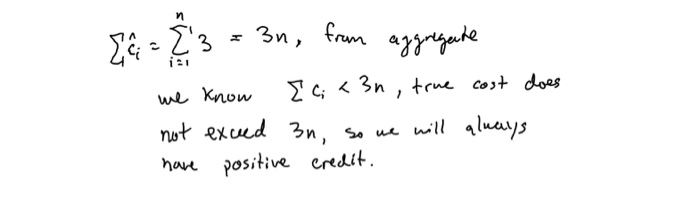 ∑ĉᵢ = ∑ⁿᵢ₌₁ 3 = 3n, from aggregate
we know ∑cᵢ < 3n, true cost does
not exceed 3n, so we will always
have positive credit.